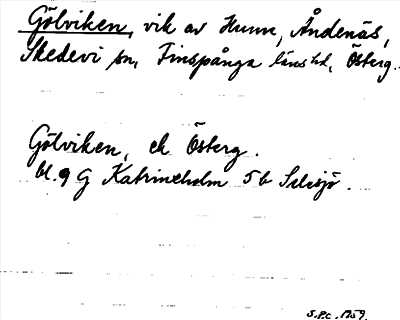 Gölviken, vik av Hunn, Ändenäs,
Skedevi sn, Finspånga länshd, Österg.
Gölviken, ek Österg.
bl. 9 G Katrineholm 5 b
S.P.C. 1959.